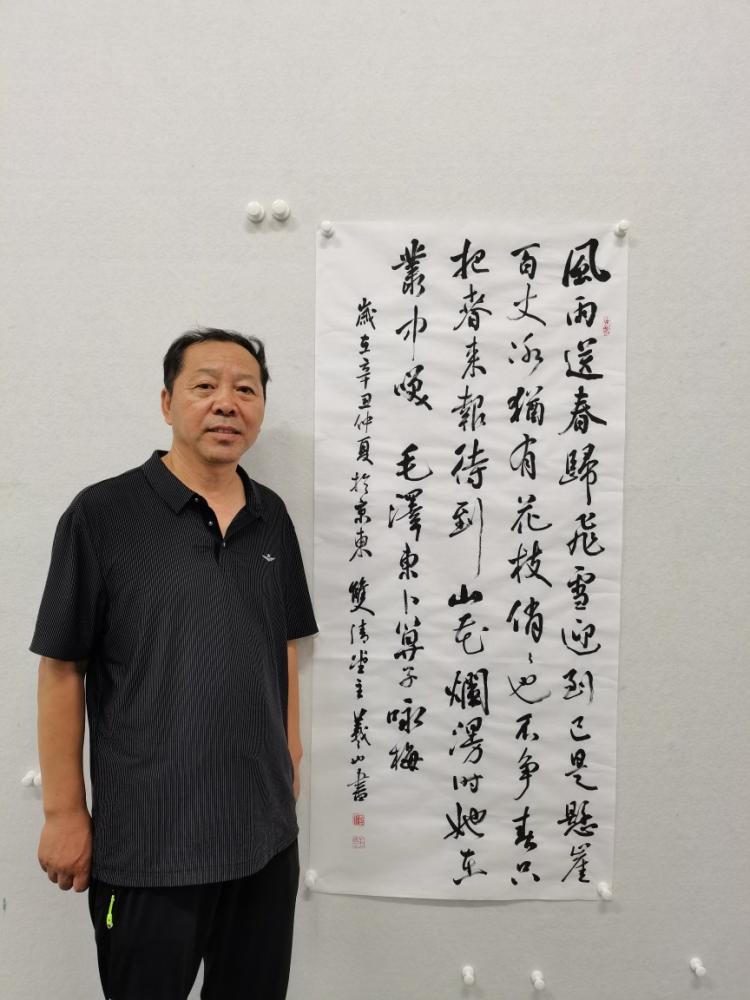 風雨送春歸飛雪迎到已是懸崖
百丈冰猶有花枝俏〻也不争春只
把春来報待到山花爛漫时她在
叢中咲 毛澤東卜算子咏梅
歲在辛丑仲夏於京東 雙清堂主 山書